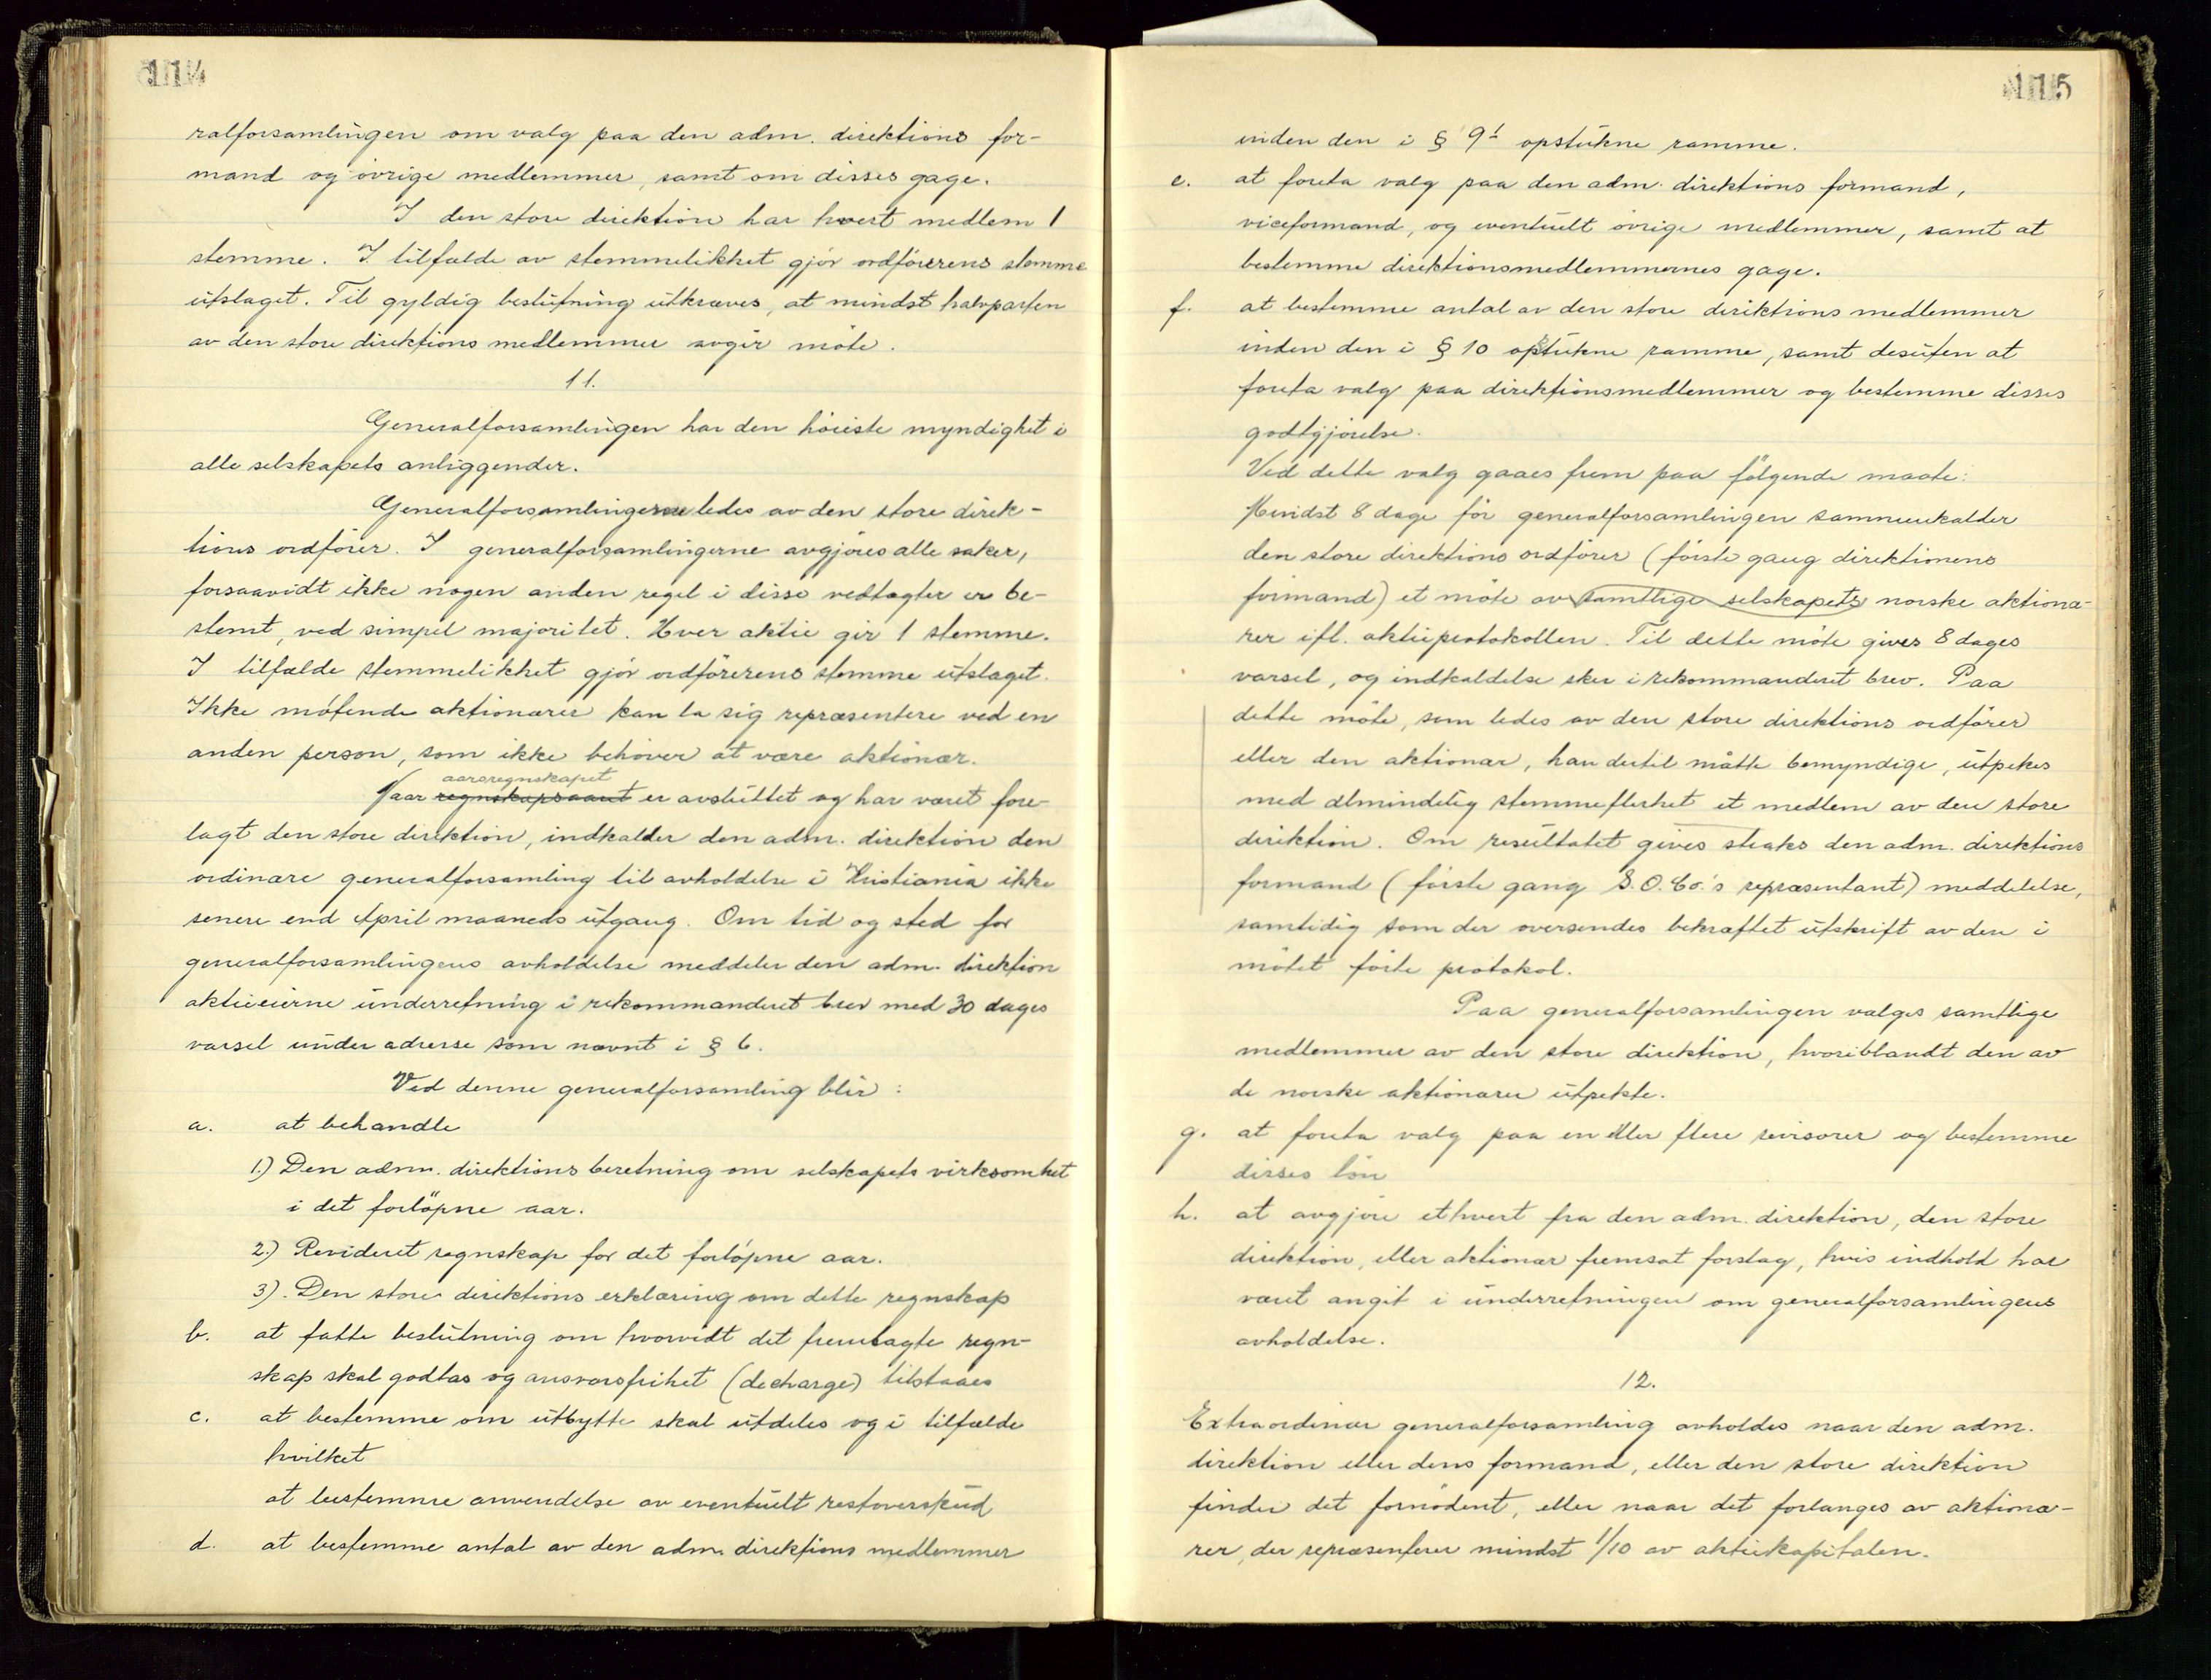 114
ralforsamlingen om valg paa den adm. direktions for-
mand og övrige medlemmer, samt om disses gage.
I den store direktion har hvert medlem 1
stemme. I tilfælde av stemmelikhet gjör ordförerens stemme
utslaget. Til gyldig beslutning utkræves, at mindst halvparten
av den store direktions medlemmer avgir möte.
11.
Generalforsamlingen har den höieste myndighet i
alle selskapets anliggender.
Generalforsamlingerne ledes av den store direk-
tions ordförer. I generalforsamlingerne avgjöres alle saker,
forsaavidt ikke nogen anden regel i disse vedtægter er be-
stemt, ved simpel majoritet. Hver aktie gir 1 stemme.
I tilfælde stemmelikhet gjör ordförerens stemme utslaget.
Ikke mötende aktionærer kan la sig repræsentere ved en
anden person, som ikke behöver at være aktionær.
aarsregnskapet
Naar regnskapsaaret er avsluttet og har været fore-
lagt den store direktion, indkalder den adm. direktion den
ordinære generalforsamling til avholdelse i Kristiania ikke
senere end April maaneds utgang. Om tid og sted for
generalforsamlingens avholdelse meddeler den adm. direktion
aktieeierne underretning i rekommanderet brev med 30 dages
varsel under adresse som nævnt i § 6.
Ved denne generalforsamling blir :
a. at behandle
1.) Den adm. direktions beretning om selskapets virksomhet
i det forlöpne aar.
2.) Revideret regnskap for det forlöpne aar.
3). Den store direktions erklæring om dette regnskap
b. at fatte beslutning om hvorvidt det fremlagte regn-
skap skal godtas og ansvarsfrihet (decharge) tilstaaes
c. at bestemme om utbytte skal utdeles og i tilfælde
hvilket
at bestemme anvendelse av eventuelt restoverskud
d. at bestemme antal av den adm. direktions medlemmer
115
inden den i § 9¹ opstukne ramme.
e. at foreta valg paa den adm. direktions formand,
viceformand, og eventuelt övrige medlemmer, samt at
bestemme direktionsmedlemmernes gage.
f. at bestemme antal av den store direktions medlemmer
inden den i § 10 opstukne ramme, samt desuten at
foreta valg paa direktionsmedlemmer og bestemme disses
godtgjörelse.
Ved dette valg gaaes frem paa fölgende maate:
Mindst 8 dage för generalforsamlingen sammenkalder
den store direktions ordförer (förste gang direktionens
formand) et möte av samtlige selskapets norske aktionæ-
rer ifl. aktieprotokollen. Til dette möte gives 8 dages
varsel, og indkaldelse sker i rekommanderet brev. Paa
dette möte, som ledes av den store direktions ordförer
eller den aktionær, han dertil måtte bemyndige, utpekes
med almindelig stemmeflerhet et medlem av den store
direktion. Om resultatet gives straks den adm. direktions
formand (förste gang S.O.Co.'s repræsentant) meddelelse,
samtidig som der oversendes bekræftet utskrift av den i
mötet förte protokol.
Paa generalforsamlingen vælges samtlige
medlemmer av den store direktion, hvoriblandt den av
de norske aktionærer utpekte.
g. at foreta valg paa en eller flere revisorer og bestemme
disses lön
h. at avgjöre ethvert fra den adm. direktion, den store
direktion, eller aktionær fremsat forslag, hvis indhold har
været angit i underretningen om generalforsamlingens
avholdelse.
12.
Extraordinær generalforsamling avholdes naar den adm.
direktion eller dens formand, eller den store direktion
finder det fornödent, eller naar det forlanges av aktionæ-
rer, der repræsenterer mindst 1/10 av aktiekapitalen.